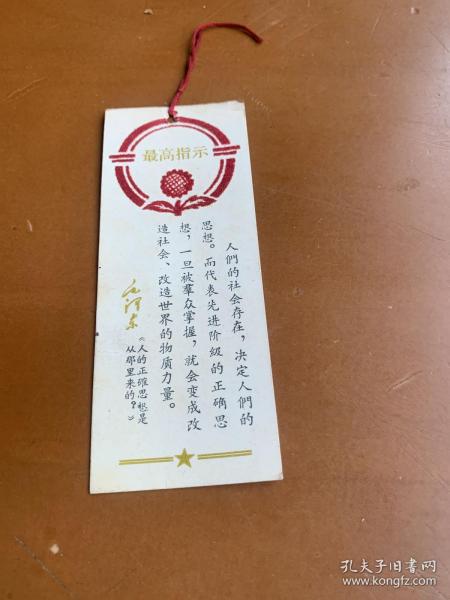 最高指示
人們的社会存在，决定人們的
思想。而代表先进阶級的正确思
想，一旦被羣众掌握，就会变成改
造社会、改造世界的物质力量。
毛泽东
《人的正確思想是
从那里来的？》
孔夫子旧书网
www.kongfz.com